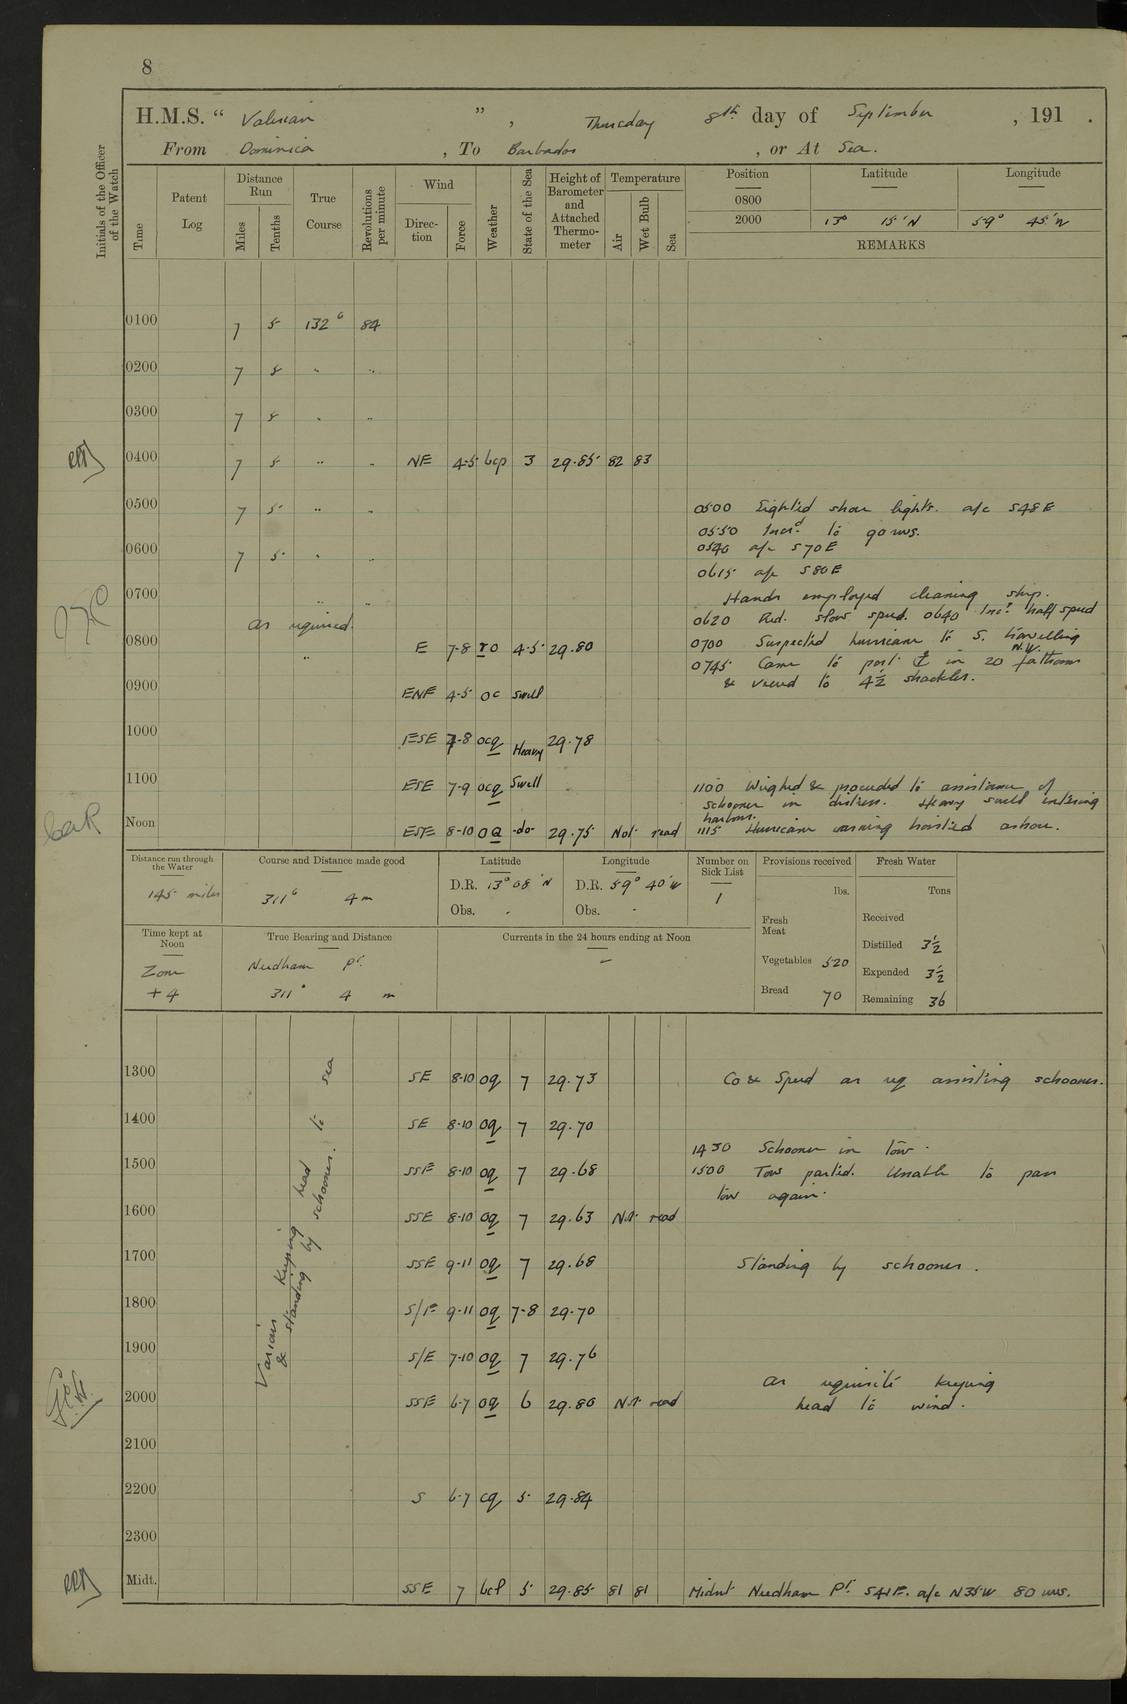 8
H.M.S. “ Valerian ” , Thursday 8th day of September , 191 .
From Dominica , To Barbados , or At Sea.
Initials of the Officer of the Watch
Time
Patent Log
Distance Run
Miles
Tenths
True Course
Revolutions per minute
Wind
Direction
Force
Weather
State of the Sea
Height of Barometer and Attached Thermometer
Temperature
Air
Wet Bulb
Sea
Position Latitude Longitude
0800
2000 13° 15'N 59° 45'W
REMARKS
0100 7 5 132° 84
0200 7 5 " "
0300 7 5 " "
0400 7 5 " " NE 4-5 bcp 3 29.85 82 83
0500 7 5 " " 0500 Sighted shore lights. a/c S48E
0550 Incrd to 90 revs.
0600 7 5 " " 0540 a/c S70E
0615 a/c S80E
0700 " " Hands employed cleaning ship.
as required. 0620 Red. slow speed. 0640 Incd half speed
0800 " E 7-8 ro 4-5 29.80 0700 Suspected hurricane to S. travelling N.W.
0745 Came to port ⚓ in 20 fathoms
0900 ENE 4-5 oc swell & veered to 4½ shackles.
1000 ESE 7-8 ocq Heavy 29.78
1100 ESE 7-9 ocq Swell 1100 Weighed & proceeded to assistance of
schooner in distress. Heavy swell entering
harbour.
Noon ESE 8-10 oq -do- 29.75 Not read 1115 Hurricane warning hoisted ashore.
Distance run through the Water
145 miles
Course and Distance made good
311° 4 m
Latitude
D.R. 13° 08'N
Obs. -
Longitude
D.R. 59° 40'W
Obs. -
Number on Sick List
1
Provisions received
lbs.
Fresh Meat
Vegetables 520
Bread 70
Fresh Water
Tons
Received
Distilled 3½
Expended 3½
Remaining 36
Time kept at Noon
Zone
+ 4
True Bearing and Distance
Needham Pt.
311° 4 m
Currents in the 24 hours ending at Noon
-
Various Keeping head to sea
& standing by schooner.
1300 SE 8-10 oq 7 29.73 Co & Speed as req assisting schooner.
1400 SE 8-10 oq 7 29.70
1430 Schooner in tow.
1500 SSE 8-10 oq 7 29.68 1500 Tow parted. Unable to pass
tow again.
1600 SSE 8-10 oq 7 29.63 Not read
1700 SSE 9-11 oq 7 29.68 Standing by schooner.
1800 S/E 9-11 oq 7-8 29.70
1900 S/E 7-10 oq 7 29.76
as requisite keeping
2000 SSE 6-7 oq 6 29.80 Not read head to wind.
2100
2200 S 6-7 cq 5 29.84
2300
Midt. SSE 7 bcp 5 29.85 81 81 Midnt Needham Pt. S41E. a/c N35W 80 revs.